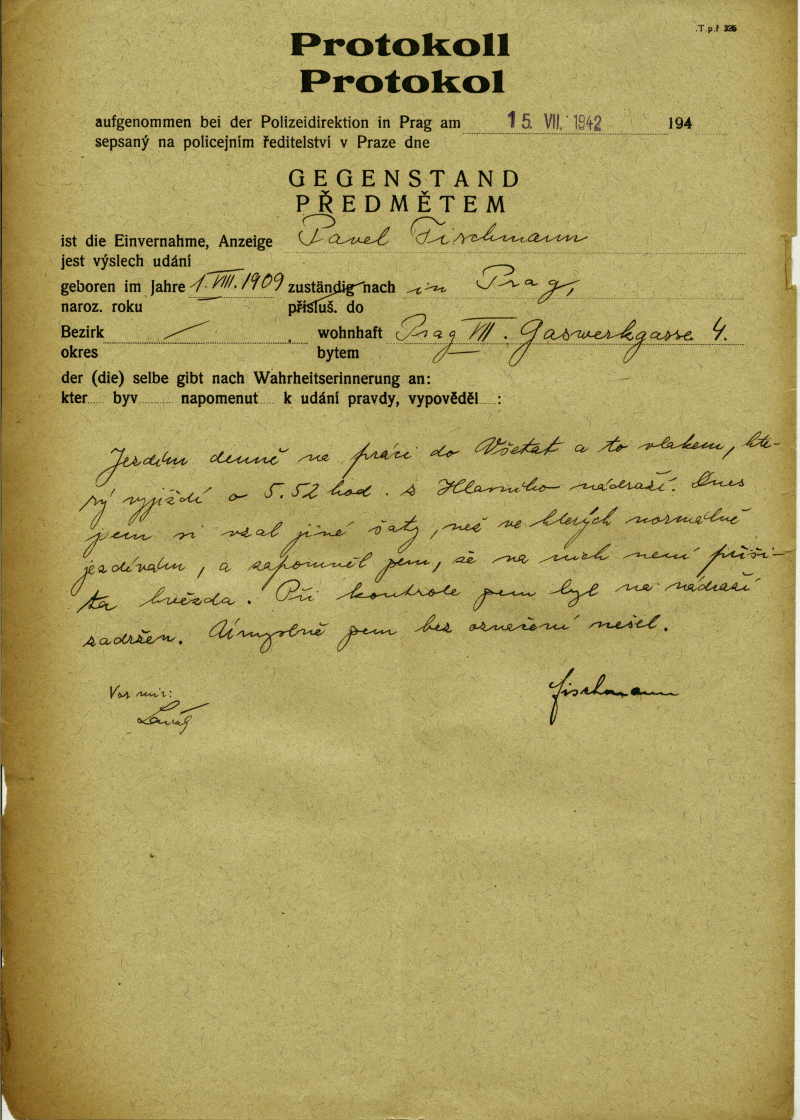 .T.p.ř 326
Protokoll
Protokol
aufgenommen bei der Polizeidirektion in Prag am 15. VII. 1942 194
sepsaný na policejním ředitelství v Praze dne
GEGENSTAND
PŘEDMĚTEM
ist die Einvernahme, Anzeige Pavel Fischmann
jest výslech udání
geboren im Jahre 1. VIII. 1909 zuständig nach in Prag,
naroz. roku přísluš. do
Bezirk / . wohnhaft Prag VII. Gaswerkgasse 4.
okres bytem
der (die) selbe gibt nach Wahrheitserinnerung an:
kter byv napomenut k udání pravdy, vypověděl :
Jezdím denně na práci do Všetat a to vlakem, kte-
rý vyjíždí o 5.52 hod. s Hlavního nádraží. Dnes
jsem si vzal jiné šaty, než ve kterých normálně
jezdívám, a zapomněl jsem, že na nich není přiši-
ta hvězda. Při kontrole jsem byl na nádraží
zadržen. Úmyslně jsem bez označení nešel.
Fischmann